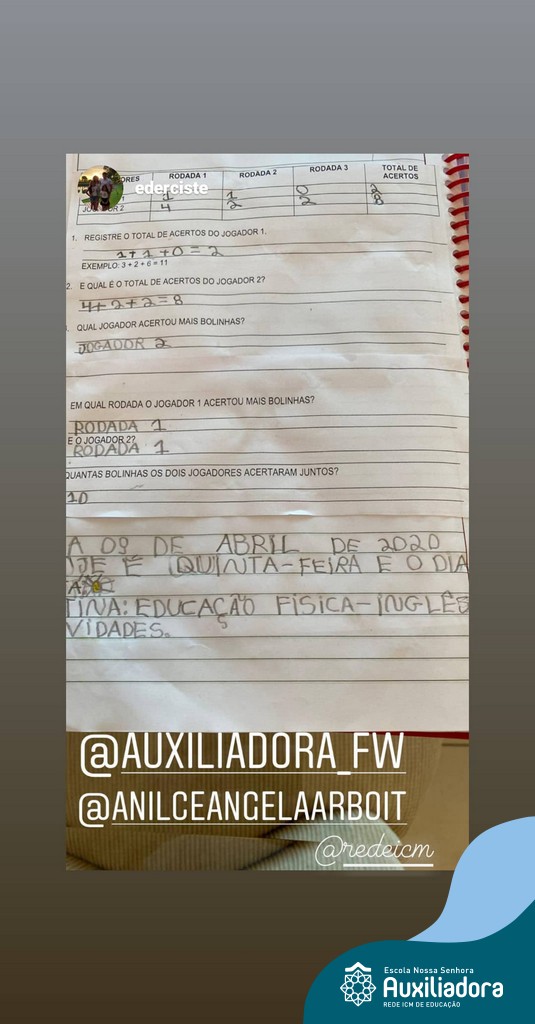 ederciste
ORES RODADA 1 RODADA 2 RODADA 3 TOTAL DE ACERTOS
1 1 0 2
JOGADOR 2 4 2 2 8
1. REGISTRE O TOTAL DE ACERTOS DO JOGADOR 1.
1+1+0=2
EXEMPLO: 3 + 2 + 6 = 11
2. E QUAL É O TOTAL DE ACERTOS DO JOGADOR 2?
4+2+2=8
QUAL JOGADOR ACERTOU MAIS BOLINHAS?
JOGADOR 2
EM QUAL RODADA O JOGADOR 1 ACERTOU MAIS BOLINHAS?
RODADA 1
E O JOGADOR 2?
RODADA 1
QUANTAS BOLINHAS OS DOIS JOGADORES ACERTARAM JUNTOS?
10
A 09 DE ABRIL DE 2020
OJE É QUINTA-FEIRA E O DIA
TINA: EDUCAÇÃO FÍSICA-INGLÊS
VIDADES.
@AUXILIADORA_FW
@ANILCEANGELAARBOIT
@redeicm
Escola Nossa Senhora
Auxiliadora
REDE ICM DE EDUCAÇÃO